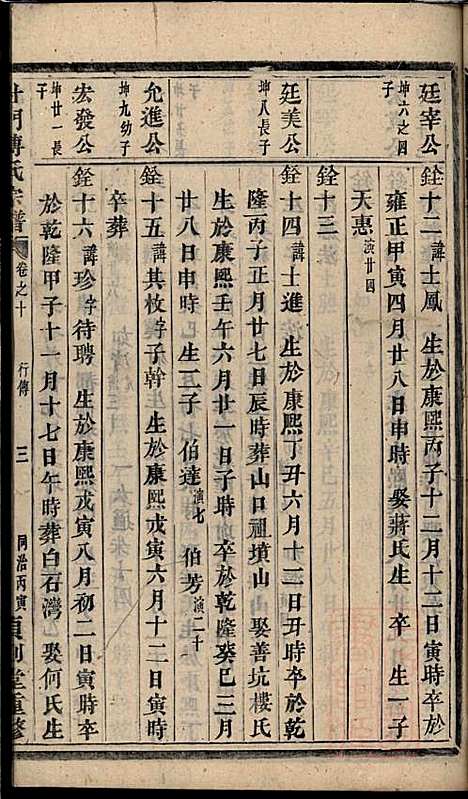 廷宰公
坤六之四
子
銓十二 諱士鳳 生於康熙丙子十二月十二日寅時卒於
雍正甲寅四月廿八日申時 娶蔣氏生 卒 生一子
天惠 演廿四
銓十三
廷美公
坤八長子
銓十四 諱士進 生於康熙丁丑六月十一日丑時卒於乾
隆丙子正月廿七日辰時葬山口祖墳山 娶善坑樓氏
生於康熙壬午六月廿一日子時 卒於乾隆癸巳三月
廿八日申時 生二子 伯達 演七 伯芳 演二十
允進公
坤九幼子
銓十五 諱其枚字子幹生 生於康熙戊寅六月十二日寅時
卒葬
宏發公
坤廿一長
子
銓十六 諱珍字待聘 生於康熙戊寅八月初二日寅時卒
於乾隆甲子十一月十七日午時葬白石灣 娶何氏生
傅氏宗譜
卷之十
行傳
三
同治丙寅
堂重修